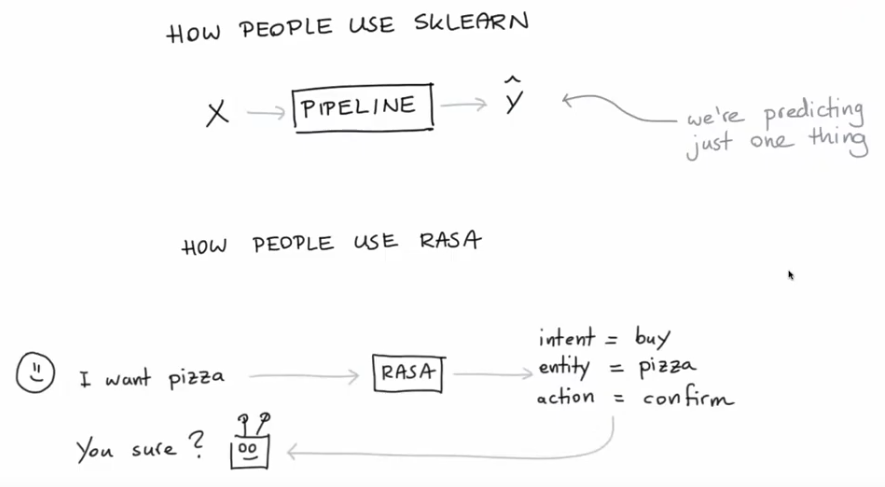 HOW PEOPLE USE SKLEARN
X → PIPELINE → ŷ
we're predicting
just one thing
HOW PEOPLE USE RASA
I want pizza → RASA →
intent = buy
entity = pizza
action = confirm
You sure?